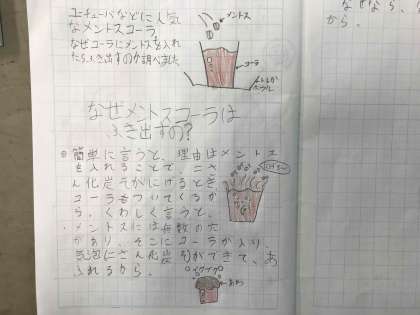 ユーチューバなどに人気
なメントスコーラ
なぜコーラにメントスを入れ
たらふき出すのか調べました
メントス
コーラ
なぜなら、
から。
なぜメントスコーラは
ふき出すの?
簡単に言うと、理由はメントス
を入れることで、二さ
ん化炭そがにげるとき、
コーラもついてくるか
ら。くわしく言うと、
メントスには無数の穴
があり、そこにコーラが入り、
気泡にさん化炭
ができて、あ
ふれるから。
あわ